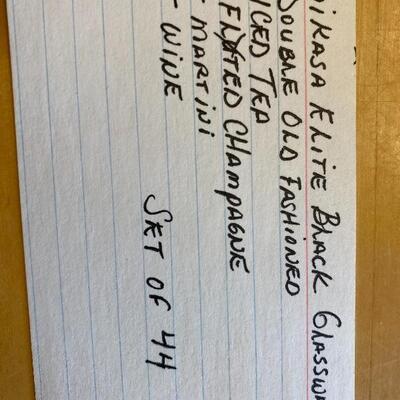 ikasa Elite Black Glassw
Double Old Fashioned
ced Tea
Fluted Champagne
- Martini
- Wine
Set of 44